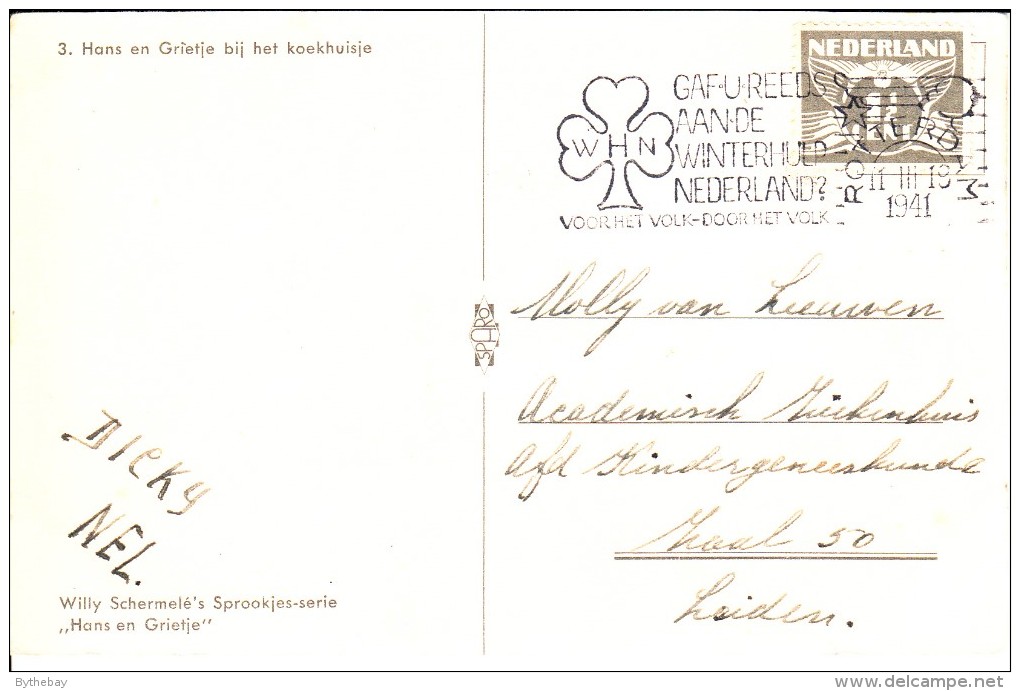 3. Hans en Grietje bij het koekhuisje
NEDERLAND
1½
CENT
WHN
GAF·U·REEDS
AAN·DE
WINTERHULP
NEDERLAND?
VOOR HET VOLK-DOOR HET VOLK
ROTTERDAM
11 III 19
1941
SPARO
Molly van Leeuwen
Academisch Ziekenhuis
Afd Kindergeneeskunde
Zaal 50
Leiden.
DICKY
NEL.
Willy Schermelé's Sprookjes-serie
„Hans en Grietje"
Bythebay
delcampe.net